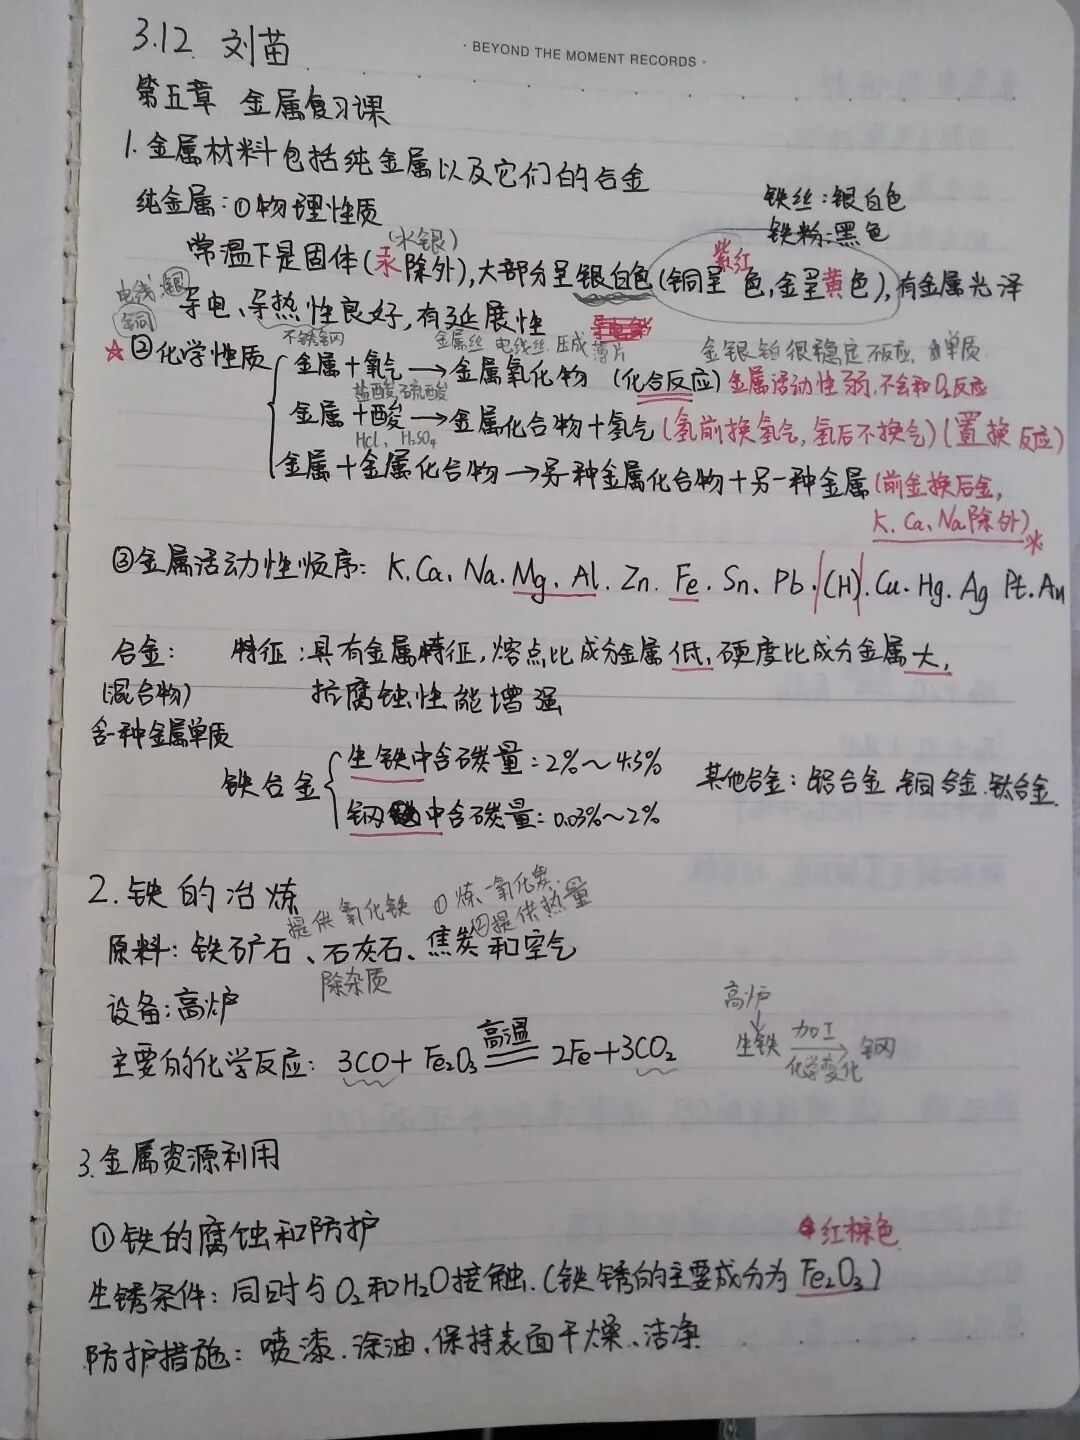 3.12 刘苗
· BEYOND THE MOMENT RECORDS ·
第五章 金属复习课
1. 金属材料包括纯金属以及它们的合金
纯金属:①物理性质
铁丝:银白色
铁粉:黑色
(水银)
常温下是固体(汞除外),大部分呈银白色(铜呈紫红色,金呈黄色),有金属光泽
电线:银
铜
导电、导热性良好,有延展性
不锈钢 金属丝 电线丝 压成薄片
金银铂很稳定不反应, 单质
☆②化学性质
金属+氧气→金属氧化物 (化合反应) 金属活动性弱,不会和O₂反应
盐酸,硫酸
金属+酸→金属化合物+氢气(氢前换氢气,氢后不换气)(置换反应)
HCl、H₂SO₄
金属+金属化合物→另种金属化合物+另一种金属(前金换后金,
K、Ca、Na除外)
③金属活动性顺序: K、Ca、Na、Mg、Al、Zn、Fe、Sn、Pb、(H)、Cu、Hg、Ag Pt、Au
合金: 特征:具有金属特征,熔点比成分金属低,硬度比成分金属大,
(混合物) 抗腐蚀性能增强
含一种金属单质
铁合金
生铁中含碳量:2%~4.3%
钢中含碳量:0.03%~2%
其他合金:铝合金、铜合金、钛合金
2. 铁的冶炼
提供氧化铁 ①炼一氧化炭
②提供热量
原料:铁矿石、石灰石、焦炭和空气
除杂质
设备:高炉
主要的化学反应: 3CO+Fe₂O₃ 高温══ 2Fe+3CO₂
高炉
↓
生铁 加工→ 钢
化学变化
3.金属资源利用
①铁的腐蚀和防护
红棕色
生锈条件:同时与O₂和H₂O接触.(铁锈的主要成分为Fe₂O₃)
防护措施:喷漆、涂油、保持表面干燥、洁净